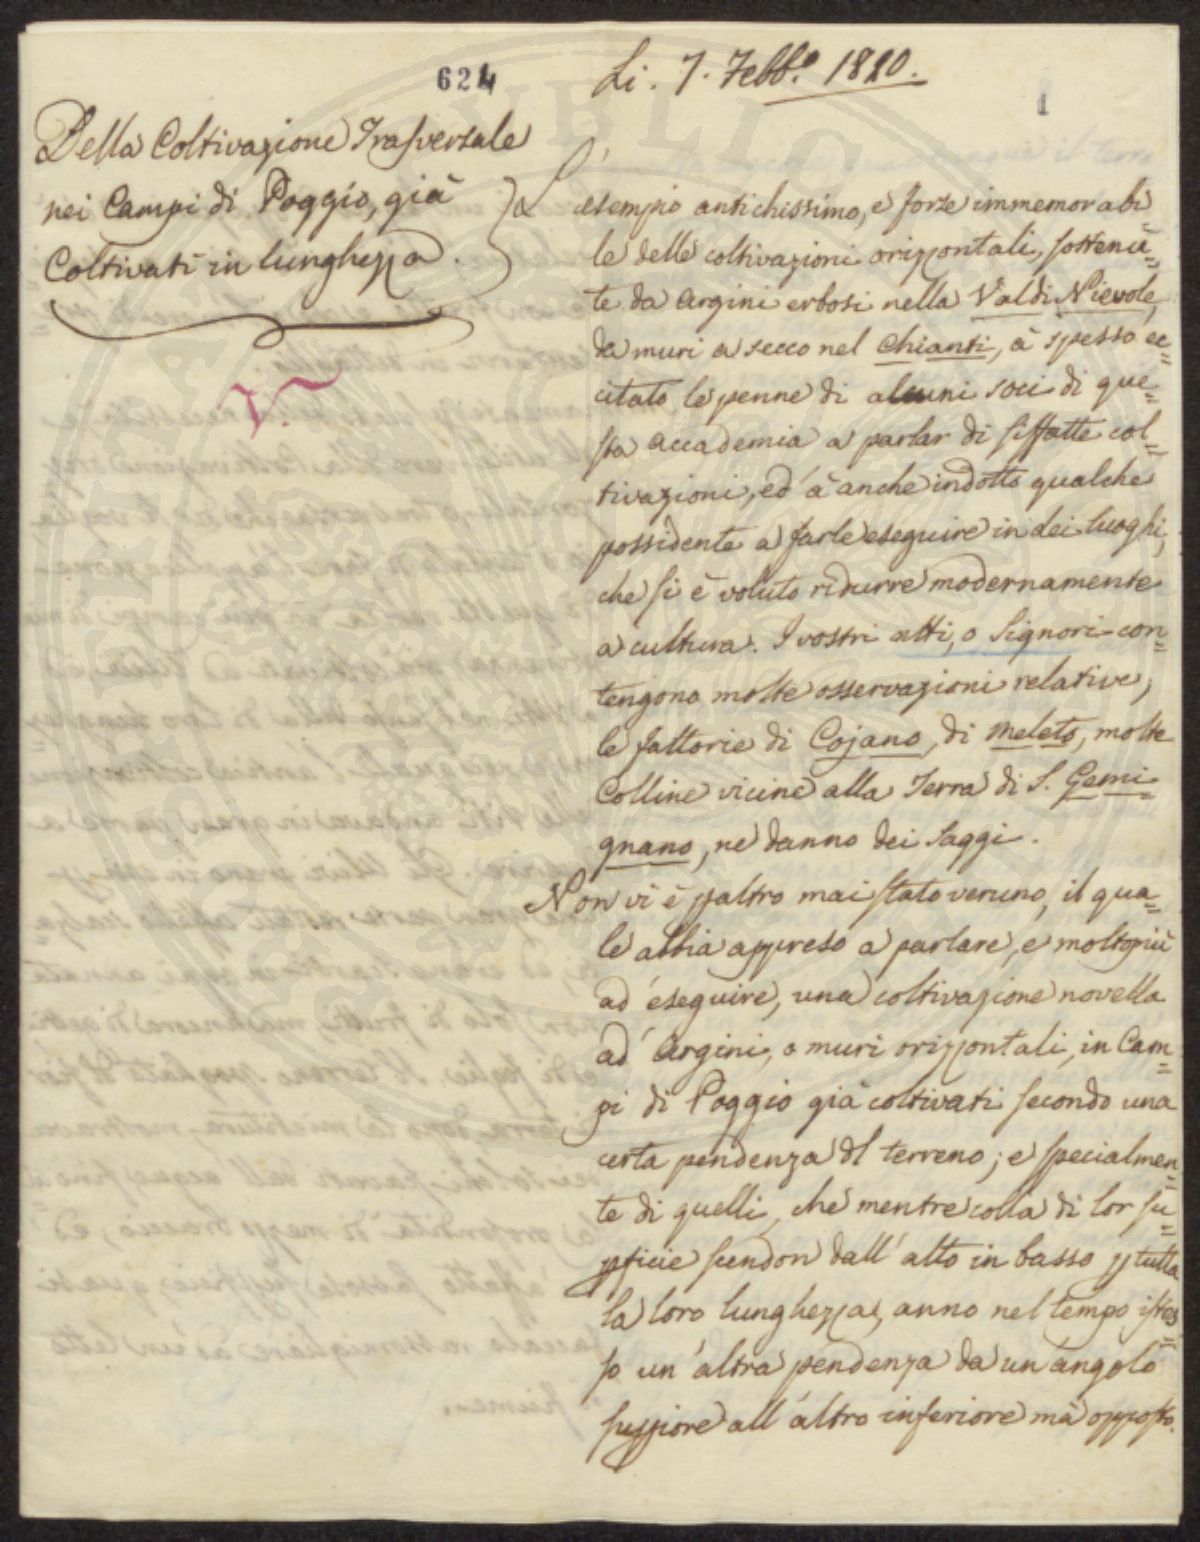 624
Li. 7. Febb.º 1820.
1
Della Coltivazione Trasversale
nei Campi di Poggio, già
Coltivati in lunghezza.
V.
L'
esempio antichissimo, e forse immemorabi=
le delle coltivazioni orizzontali, sostenu=
te da Argini erbosi nella Val di Nievole,
da muri a secco nel Chianti, à spesso ec=
citato le penne di alcuni soci di que=
sta accademia a parlar di siffatte col=
tivazioni, ed à anche indotto qualche
possidente a farle eseguire in dei luoghi,
che si è voluto ridurre modernamente
a cultura. I vostri atti, o Signori con=
tengono molte osservazioni relative;
le fattorie di Cojano, di Meleto, molte
Colline vicine alla Terra di S. Gemi=
gnano, ne danno dei Saggi.
Non vi è paltro mai stato veruno, il qua=
le abbia appreso a parlare, e molto più
ad eseguire, una coltivazione novella
ad Argini, o muri orizzontali, in Cam=
pi di Poggio già coltivati secondo una
certa pendenza del terreno; e specialmen=
te di quelli, che mentre colla di lor su=
pficie scendon dall' alto in basso p tutta
la loro lunghezza, anno nel tempo istes=
so un' altra pendenza da un angolo
suppiore all' altro inferiore mà opposto.